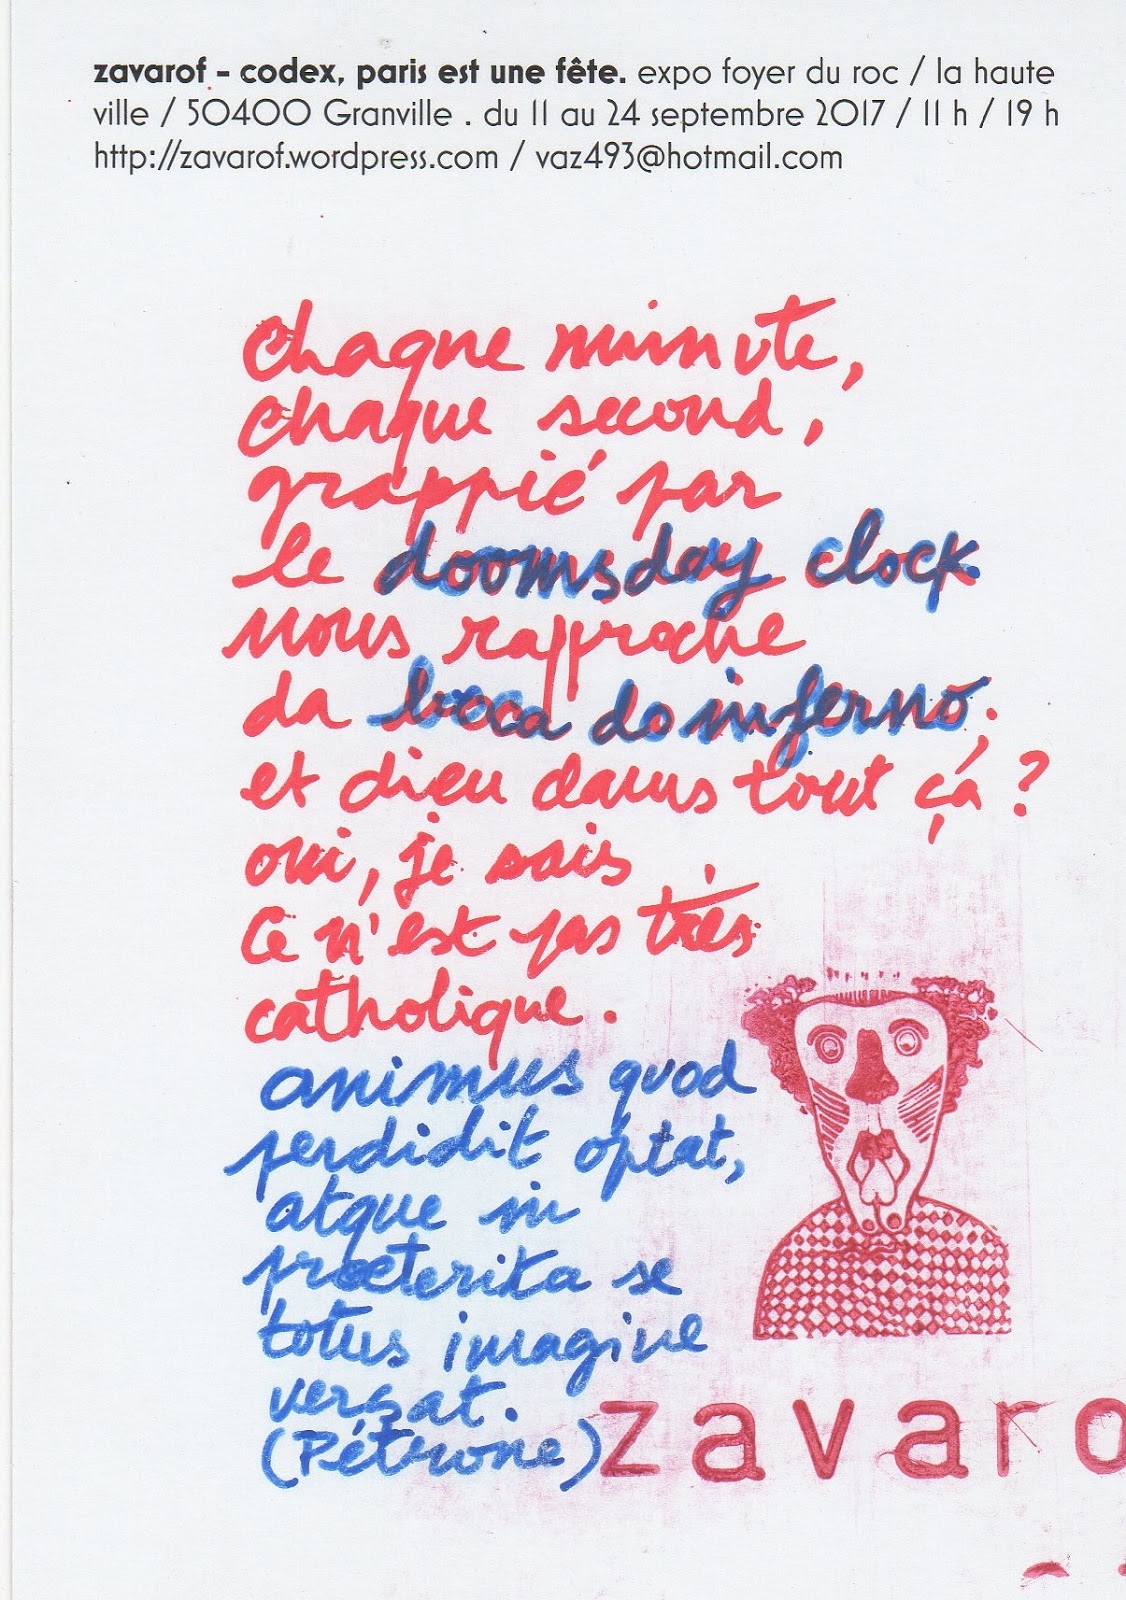 zavarof - codex, paris est une fête. expo foyer du roc / la haute
ville / 50400 Granville . du 11 au 24 septembre 2017 / 11 h / 19 h
http://zavarof.wordpress.com / vaz493@hotmail.com
chaque minute,
chaque second,
grappié par
le doomsday clock
nous rapproche
da boca do inferno.
et dieu dans tout çá ?
oui, je sais
ce n'est pas très
catholique.
animus quod
perdidit optat,
atque in
præterita se
totus imagine
versat.
(Pétrone)
zavaro